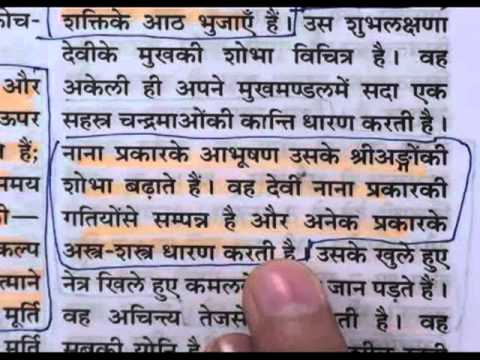 कोच-
और
ऊपर
हैं;
समय
की—
कल्प
त्माने
मूर्ति
मूर्ति
शक्तिके आठ भुजाएँ हैं। उस शुभलक्षणा
देवीके मुखकी शोभा विचित्र है। वह
अकेली ही अपने मुखमण्डलमें सदा एक
सहस्र चन्द्रमाओंकी कान्ति धारण करती है।
नाना प्रकारके आभूषण उसके श्रीअङ्गोंकी
शोभा बढ़ाते हैं। वह देवी नाना प्रकारकी
गतियोंसे सम्पन्न है और अनेक प्रकारके
अस्त्र-शस्त्र धारण करती है। उसके खुले हुए
नेत्र खिले हुए कमलके जान पड़ते हैं।
वह अचिन्त्य तेजसे ती है।
सबकी योनि है